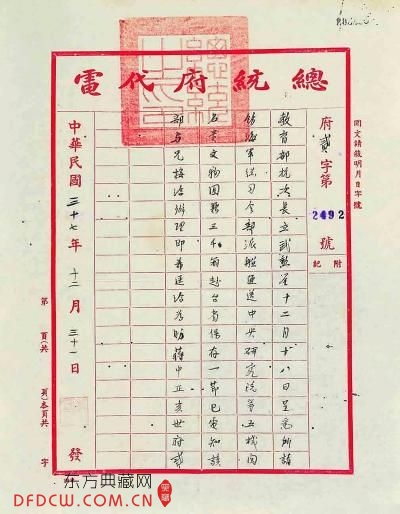 總統府代電
開文請敘明月日字號
府貳字第2492號
附記
教育部杭次長立武勳鑒十二月十八日呈悉所請
飭海軍總司令部派艦運送中央研究院等五機關
文物圖 三千箱赴台省保存一節已電知該
部与兄接洽辦理即希逕洽為盼蔣中正亥世府貳
中華民國三十七年十二月三十一日發
第 頁(共 頁)本頁共 字
东方典藏网
DFDCW.COM.CN